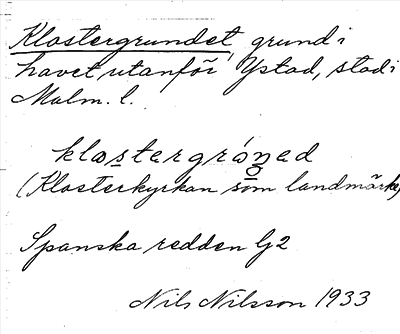 Klostergrundet, grund i
havet utanför Ystad, stad i
Malm. l.
klostergróned
(Klosterkyrkan som landmärke)
Spanska redden G2
Nils Nilsson 1933